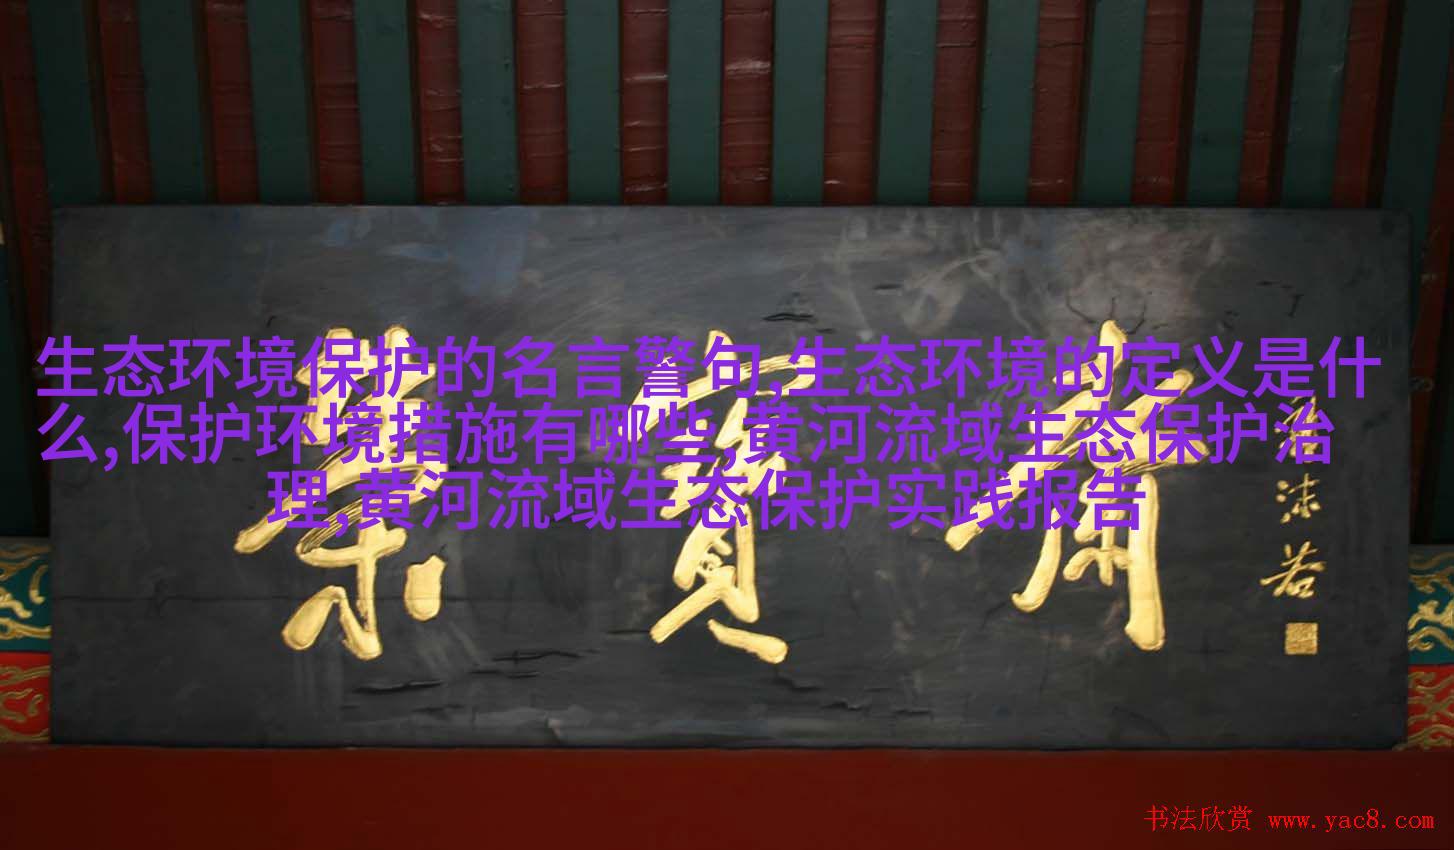 生态环境保护的名言警句,生态环境的定义是什
么,保护环境措施有哪些,黄河流域生态保护治
理,黄河流域生态保护实践报告
荣寶斋
沫若
书法欣赏 www.yac8.com